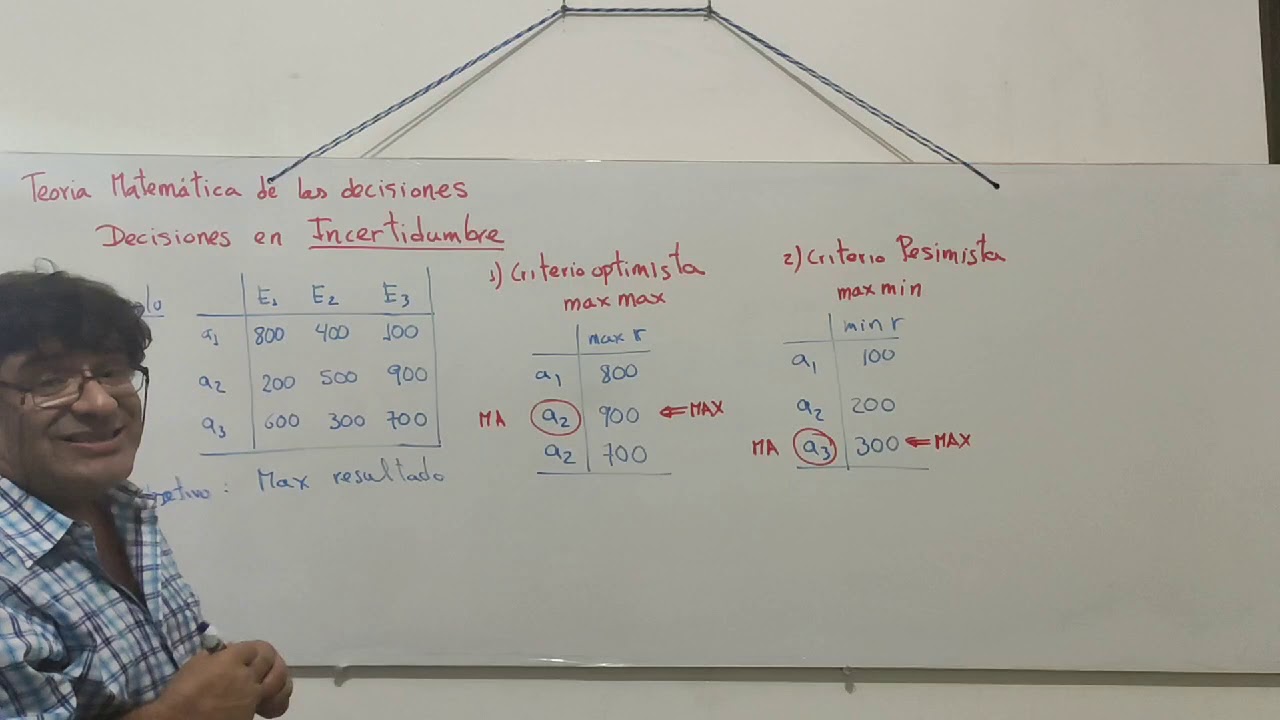 Teoria Matemática de las decisiones
Decisiones en Incertidumbre
E1 E2 E3
a1 800 400 100
a2 200 500 900
a3 600 300 700
: Max resultado
1) Criterio optimista
max max
max r
a1 800
MA a2 900 ⇐MAX
a2 700
2) Criterio Pesimista
max min
min r
a1 100
a2 200
MA a3 300 ⇐MAX